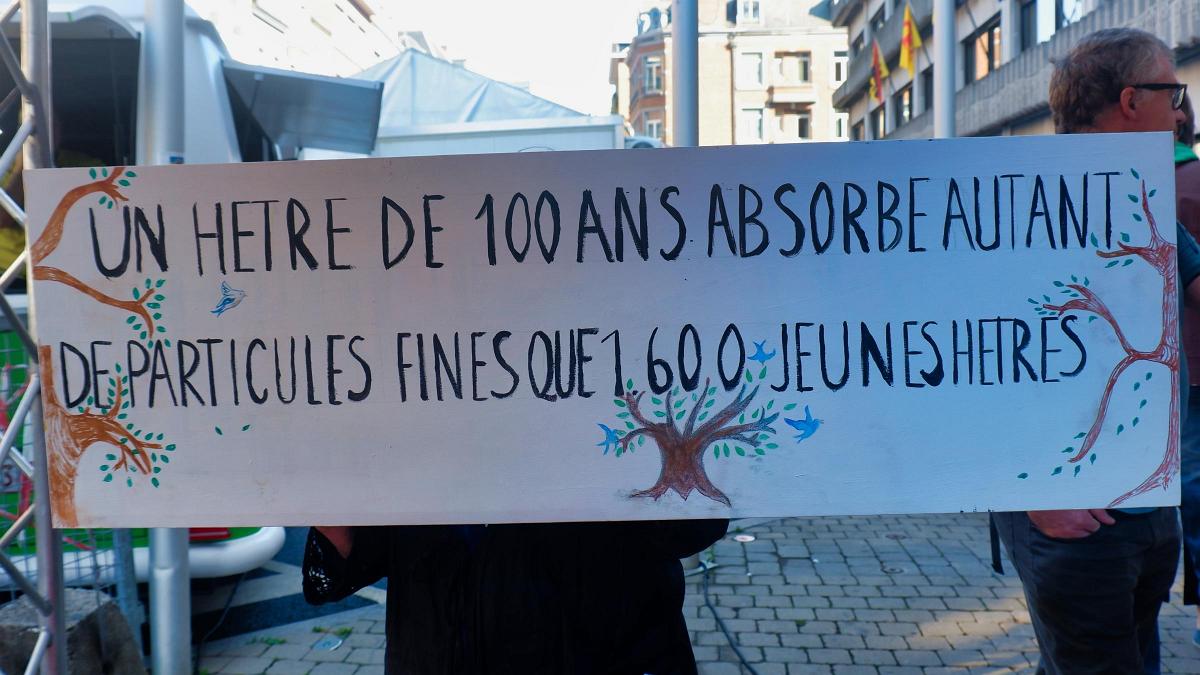 UN HETRE DE 100 ANS ABSORBE AUTANT
DE PARTICULES FINES QUE 1.600 JEUNES HETRES